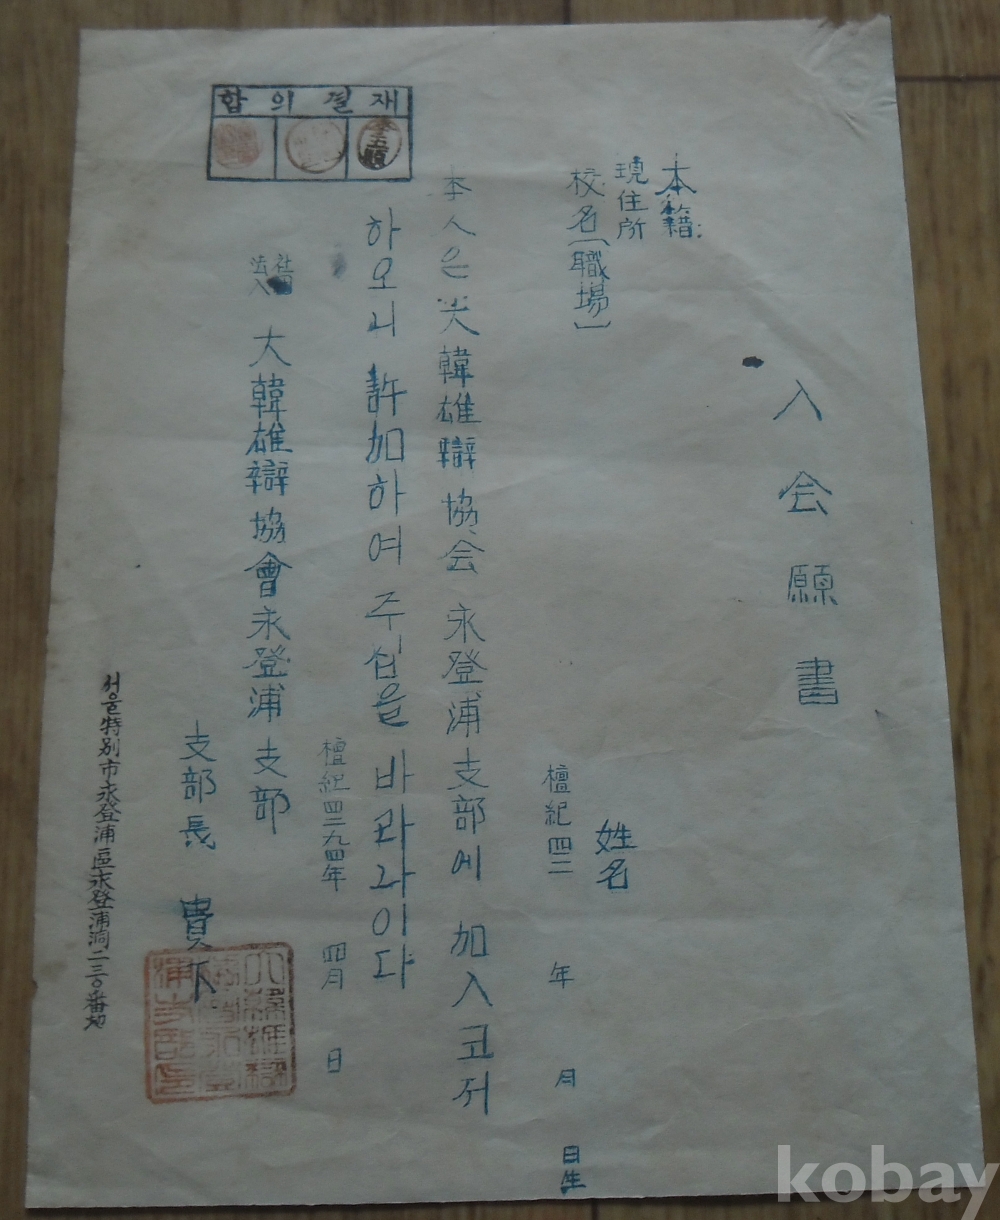 入会願書
本籍:
現住所
校名(職場)
姓名
檀紀四二 年 月 日生
本人은 大韓雄辯協会 永登浦支部에 加入코저
하오니 許加하여 주심을 바라나이다
檀紀四二九四年 四月 日
社団法人 大韓雄辯協會永登浦支部
支部長 貴下
서울特別市永登浦區永登浦洞二三〇番地
합의 결재
kobay